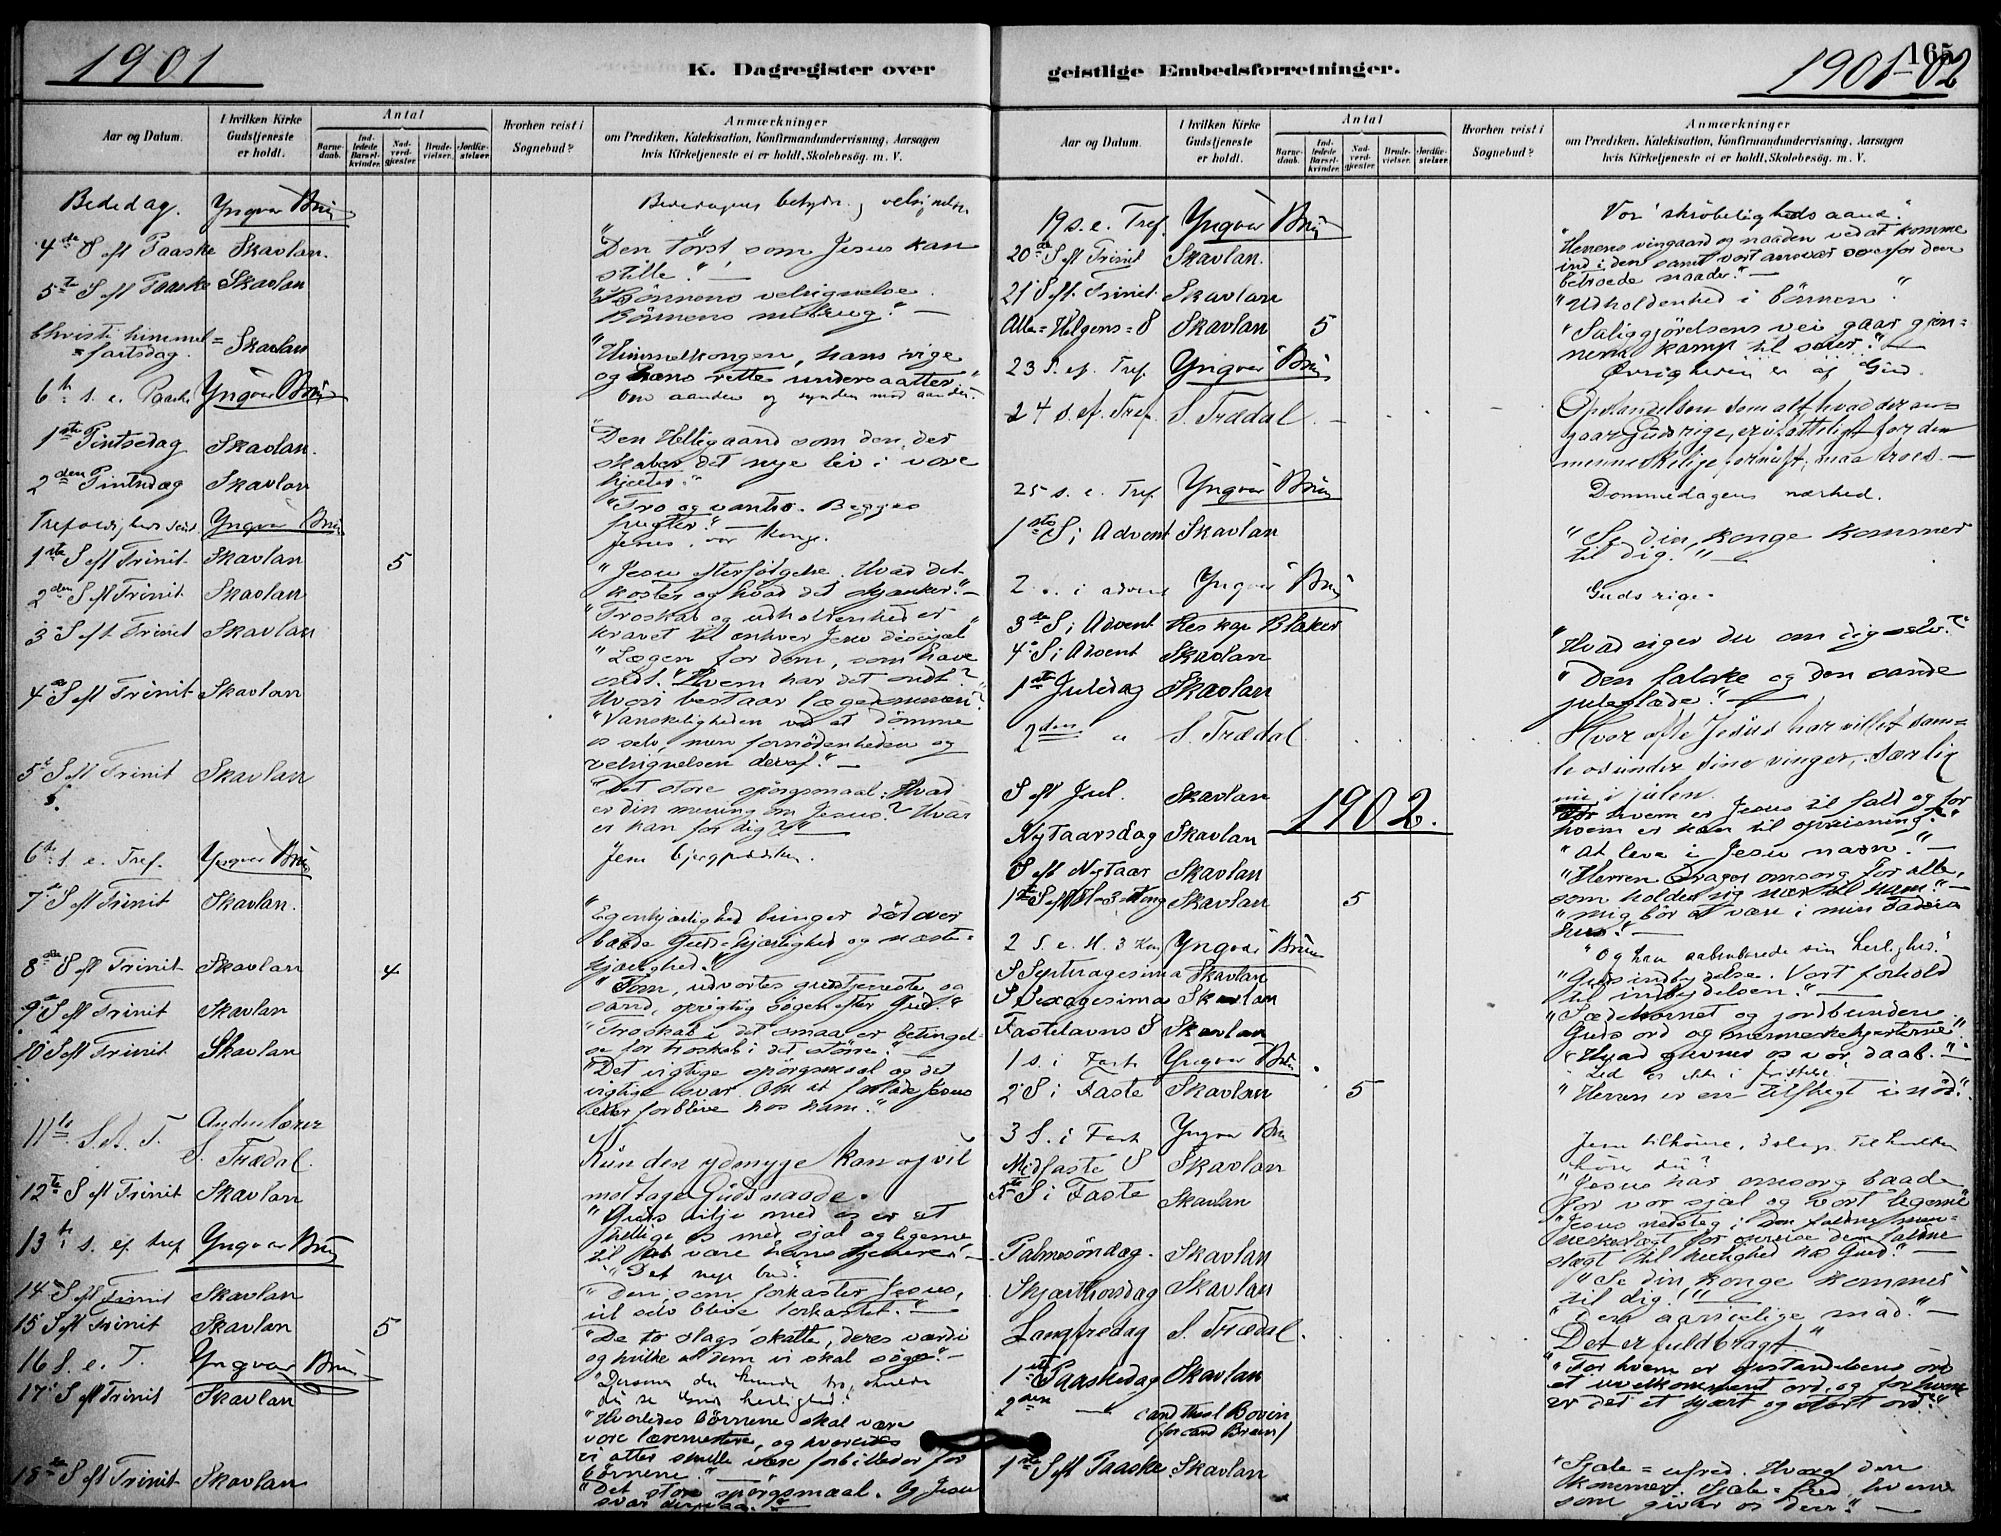 1901
K. Dagregister over
Aar og Datum.
I hvilken Kirke Gudstjeneste er holdt.
Antal
Barnedaab.
Indledede Barselkvinder.
Nadverdgjester
Brudevielser.
Jordfæstelser.
Hvorhen reist i Sognebud?
Anmærkninger
om Prædiken, Katekisation, Konfirmandundervisning, Aarsagen
hvis Kirketjeneste ei er holdt, Skolebesög. m. V.
Bededag. Yngvar Brun
4de S eft Paaske Skavlan. "Den törst, som Jesus kan
stille." —
5te S eft Paaske Skavlan "Bönnens velsignelse.
Bönnens misbrug." —
Christi himmel=
fartsdag. Skavlan "Himmelkongen, hans rige
og hans rette undersaatter"
6te s. e. Paaske Yngvar Brun Om aanden og synden mod aanden.
1ste Pintsedag Skavlan. "Den Helligaand som den, der
skaber det nye liv i vore
hjerter."
2den Pintsedag Skavlan "Tro og vantro. Begges
frugter." —
Yngvar Brun Jesus, vor Konge.
1ste S eft Trinit Skavlan 5 "Jesu efterfölgelse. Hvad det
koster og hvad det skjænker." —
2den S eft Trinit Skavlan "Troskab og udholdenhed er
kravet til enhver Jesu discipel"
3 S eft Trinit Skavlan "Lægen for dem, som have
ondt. Hvem har det ondt?
Hvori bestaar lægedommen?"
4de S eft Trinit Skavlan "Vanskeligheden ved at dömme
os selv, men fornödenheden og
velsignelsen deraf." —
5te S eft Trinit Skavlan "Det store spörgsmaal: Hvad
er din mening om Jesus? Hvad
er han for dig?" —
6te s. e. Tref. Yngvar Brun Jesu bjergprædiken.
7de S eft Trinit Skavlan. "Egenkjærlighed bringer död over
baade Guds-kjærlighed og næste-
kjærlighed."
8de S eft Trinit Skavlan 4 "Tom, udvortes gudstjeneste og
sand, oprigtig sögen efter Gud."
9de S eft Trinit Skavlan "Troskab i det smaa er betingel-
se for troskab i det större." —
10 S eft Trinit Skavlan "Det vigtige spörgsmaal og det
vigtige svar. Om at forlade Jesus
eller forblive hos ham." —
11te S. e. T. Andenlærer
S. Trædal. Kun den ydmyge kan og vil
modtage Guds naade.
12te S eft Trinit Skavlan "Guds vilje med os er at
hellige os med sjæl og legeme
til at være hans tjenere" —
13te s. ef. tref Yngvar Brun "Det nye bud."
14 S eft Trinit Skavlan "Den, som forkaster Jesus,
vil selv blive forkastet." —
15 S eft Trinit Skavlan 5 "De to slags skatte, deres værdi
og hvilke af dem vi skal söge." —
16 S. e. T. Yngvar Brun "Dersom du kunde tro, skulde
du se Guds herlighed."
17de S eft Trinit Skavlan "Hvorledes börnene skal være
vore læremestere, og hvorledes
vi atter skulle være forbilleder for
börnene." —
18de S eft Trinit Skavlan "Det store spörgsmaal. Og Jesu
svar derpaa." —
geistlige Embedsforretninger.
165
1901-02
Aar og Datum.
I hvilken Kirke Gudstjeneste er holdt.
Antal
Barnedaab.
Indledede Barselkvinder.
Nadverdgjester
Brudevielser.
Jordfæstelser.
Hvorhen reist i Sognebud?
Anmærkninger
om Prædiken, Katekisation, Konfirmandundervisning, Aarsagen
hvis Kirketjeneste ei er holdt, Skolebesög. m. V.
19 s. e. Tref. Yngvar Brun Vor 'skröbeligheds aand."
20de S eft Trinit Skavlan. "Herrens vingaard og naaden ved at komme
ind i den samt vort ansvar overfor den
betroede naade." —
21 S eft. Trinit Skavlan "Udholdenhed i bönnen."
Alle=Helgens=S Skavlan 5 "Saliggjörelsens vei gaar gjen=
nem kamp til seier." —
23 S. ef. Tref. Yngvar Brun Övrigheden er af Gud.
24 s. ef. Tref. S. Trædal. Opstandelsen som alt hvad der an=
gaar Guds rige, er ufatteligt for den
menneskelige fornuft, maa troes. —
25 s. e. Tref. Yngvar Brun Dommedagens nærhed.
1ste S i Advent Skavlan "Se din konge kommer
til dig." —
2 s. i advent Yngvar Brun Guds rige.
3de S i Advent Res kap Blaker "Hvad siger du om dig selv?"
4de S i Advent Skavlan
1ste Juledag Skavlan "Den falske og den sande
juleglæde." —
2den " S. Trædal. Hvor ofte Jesus har villet sam=
le os under sine vinger, særlig
nu i julen.
S eft Jul. Skavlan hvem er Jesus til fald og for
hvem er han til opreisning?"
1902.
Nytaarsdag Skavlan "At leve i Jesu navn." —
S eft Nytaar Skavlan "Herren drager omsorg for alle,
som holder sig nær til ham." —
1ste S eft H-3-Kong Skavlan 5 "mig bör at være i min Faders
hus." —
2 S. e. H. 3 Kong Yngvar Brun "Og han aabenbarede sin herlighed."
S Septuagesima Skavlan "Guds indbydelse. Vort forhold
til indbydelsen." —
S Sexagesima Skavlan "Sædekornet og jordbunden.
Guds ord og menneskehjerterne"
Fastelavns S Skavlan "Hvad skjenker os vor daab." —
1 s. i Fast Yngvar Brun "Led os ikke i fristelse"
2 S i Faste Skavlan 5 "Herren er en tilflugt i nöd."
3 S. i Fast Yngvar Brun
Midfaste S Skavlan "Jesus har omsorg baade
for vor sjæl og vort legeme"
5te S i Faste Skavlan
Palmesöndag. Skavlan "Se din konge kommer
til dig!" —
Skjærthorsdag Skavlan "Den aandelige mad." —
Langfredag S. Trædal. "Det er fuldbragt."
1ste Paaskedag Skavlan "For hvem er opstandelsens ord
et uvelkomment ord, og for hvem
er det et kjært og stort ord?"
2den — cand theol Bovin
(for cand Braun)
1ste S eft Paaske Skavlan "Sjæle=ufred. Hvoraf den
kommer. Sjæle=fred, hvem
som giver os den." —